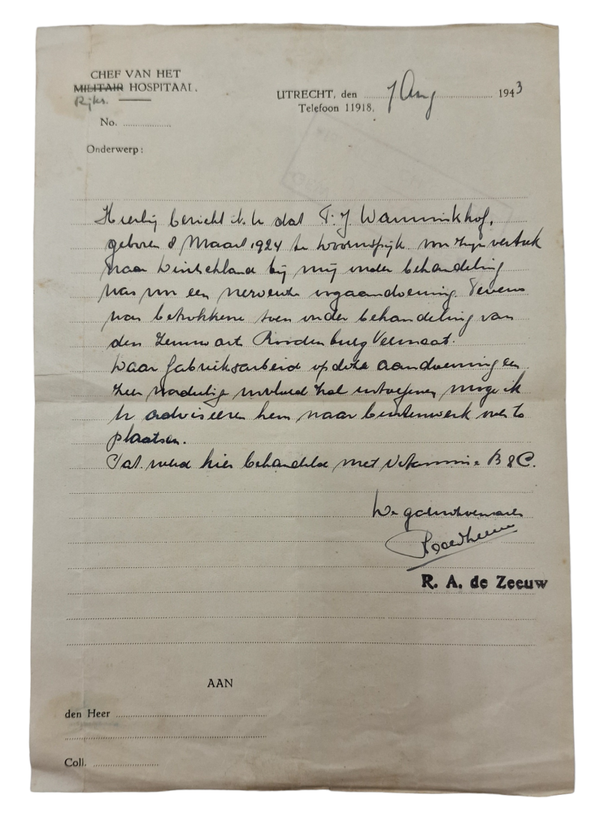 CHEF VAN HET
MILITAIR HOSPITAAL.
Rijks.
UTRECHT, den 7 Aug 1943
Telefoon 11918.
No.
Onderwerp:
Hierbij bericht ik U dat F. J. Wanninkhof,
geboren 8 Maart 1924 te voor zijn vertrek
naar Duitschland bij mij onder behandeling
was een nerveuze Tevens
was betrokkene toen onder behandeling van
den Zenuwarts Roodenburg Vermaat.
Waar fabrieksarbeid op deze aandoening een
zeer nadelige invloed zal uitoefenen moge ik
U adviseeren hem naar buitenwerk over te
plaatsen.
Pat. werd hier behandeld met Vitamine B & C.
De
R. A. de Zeeuw
AAN
den Heer
Coll.